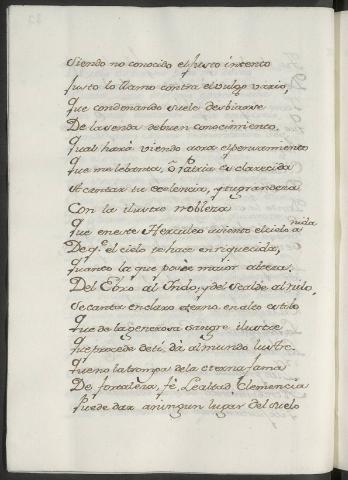 Siendo no conocido el justo intento
justo lo llamo contra el vulgo vario,
que condenando suele desbiarse
De la senda de buen conocimiento,
qual hará viendo aora el pensamiento
que me lebanta, ò Patria esclarecida
A cantar tu ecelencia, y tu grandeza
Con la ilustre nobleza
que en este Herculeo asiento el cielo a
nida
De q.e el cielo te hace enriquecida,
quanto la que posèe maior alteza.
Del Ebro al Indo, y del Scalde al nilo,
Se canta en claro eterno, en alto estilo
que de la generosa sangre ilustre
que procede de ti, dà al mundo lustre.
que no la trompa de la eterna fama
De fortaleza, fè, Lealtad, Clemencia
Puede dar a ningun lugar del suelo